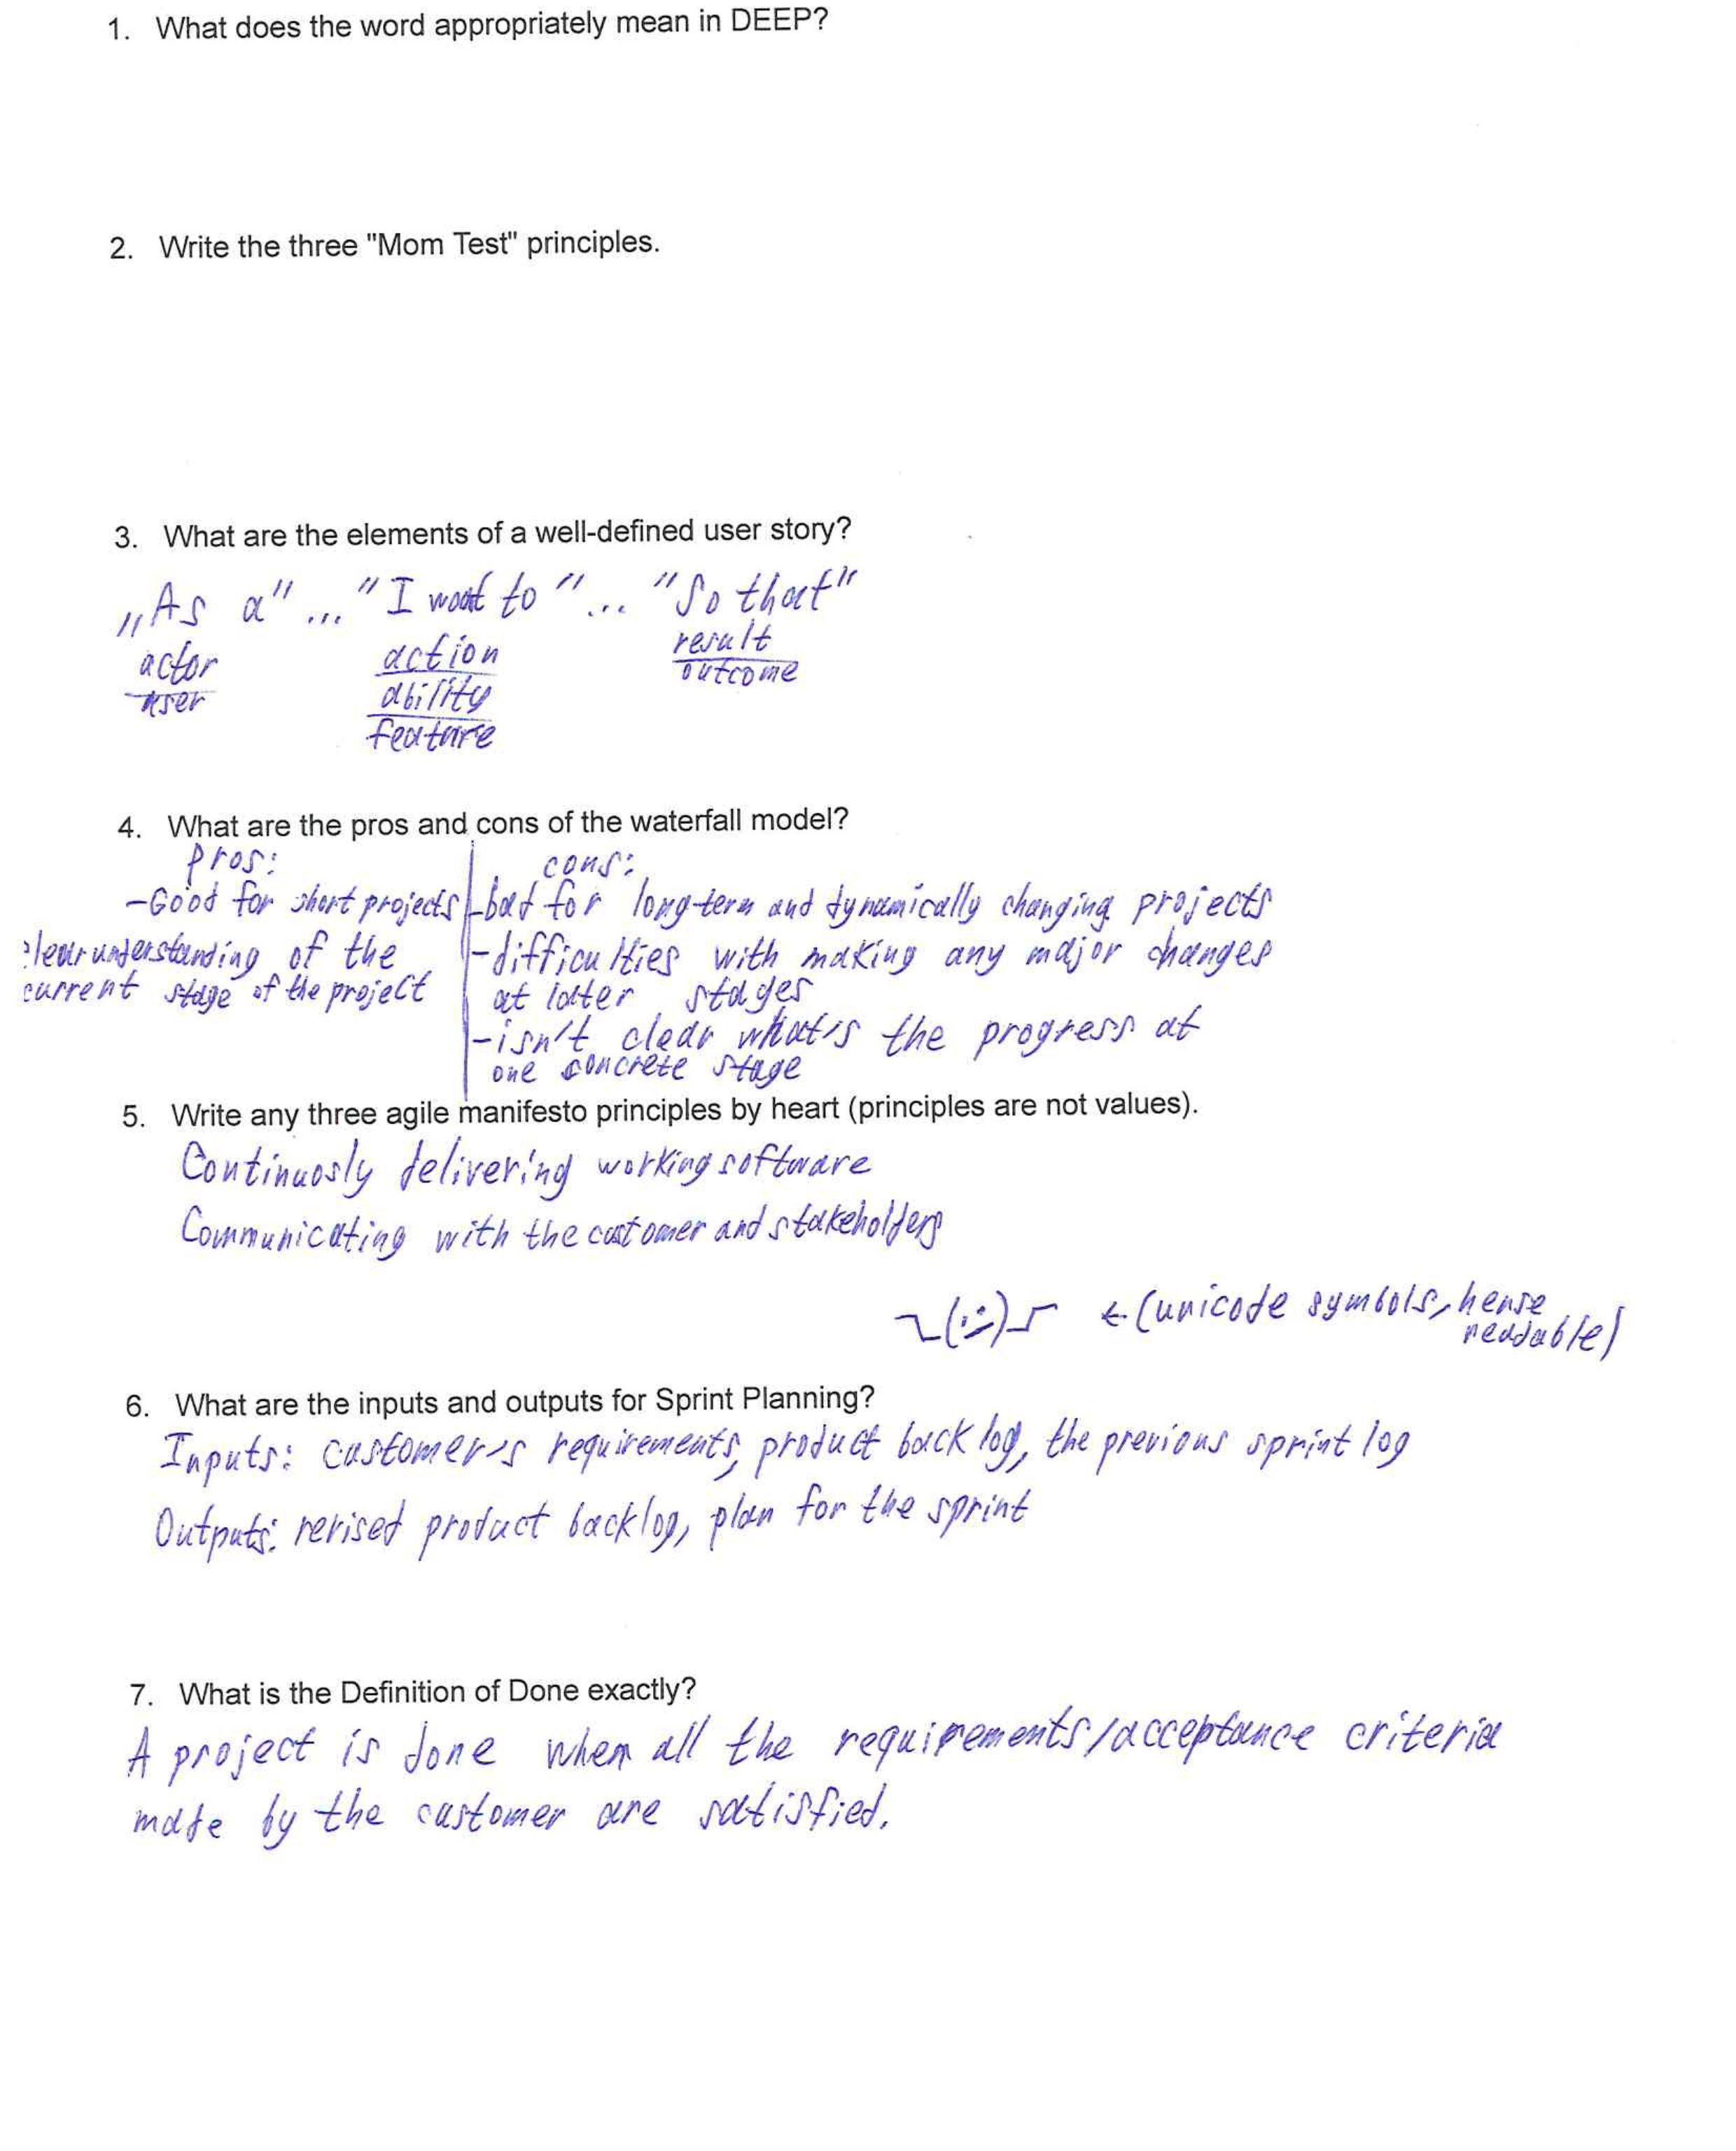 1. What does the word appropriately mean in DEEP?
2. Write the three "Mom Test" principles.
3. What are the elements of a well-defined user story?
„As a" ... "I want to" ... "So that"
actor action result
user ability outcome
feature
4. What are the pros and cons of the waterfall model?
pros: cons:
-Good for short projects -bad for long-term and dynamically changing projects
clear understanding of the -difficulties with making any major changes
current stage of the project at later stages
-isn't clear what's the progress at
one concrete stage
5. Write any three agile manifesto principles by heart (principles are not values).
Continuosly delivering working software
Communicating with the customer and stakeholders
← (unicode symbols, hense
readable)
6. What are the inputs and outputs for Sprint Planning?
Inputs: customer's requirements, product back log, the previous sprint log
Outputs: revised product backlog, plan for the sprint
7. What is the Definition of Done exactly?
A project is done when all the requirements/acceptance criteria
made by the customer are satisfied.